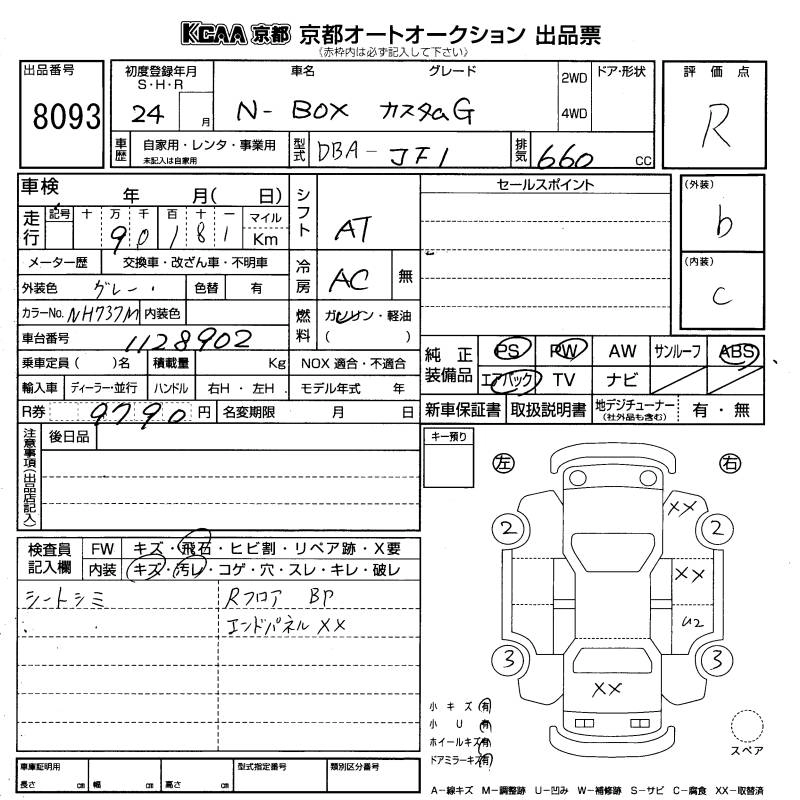 KCAA 京都 京都オートオークション 出品票
(赤枠内は必ず記入して下さい)
出品番号 8093
初度登録年月 S・H・R 24 月
車名 グレード N-BOX カスタムG
2WD 4WD
ドア・形状
評価点 R
車歴 自家用・レンタ・事業用 未記入は自家用
型式 DBA-JF1
排気 660 CC
車検 年 月( 日)
シフト AT
セールスポイント
(外装) b
(内装) c
走行 記号 十 万 千 百 十 一 マイル Km
9 0 1 8 1
メーター歴 交換車・改ざん車・不明車
冷房 AC 無
外装色 グレー 色替 有
カラーNo. NH737M 内装色
燃料 ガソリン・軽油 ( )
車台番号 1128902
純正装備品 PS PW AW サンルーフ ABS
エアバック TV ナビ
乗車定員( )名 積載量 Kg NOX 適合・不適合
輸入車 ディーラー・並行 ハンドル 右H・左H モデル年式 年
新車保証書 取扱説明書 地デジチューナー(社外品も含む) 有・無
R券 9790 円 名変期限 月 日
注意事項(出品店記入) 後日品
キー預り
左 右
検査員記入欄 FW キズ・飛石・ヒビ割・リペア跡・X要
内装 キズ・汚レ・コゲ・穴・スレ・キレ・破レ
シートシミ Rフロア BP
エンドパネル XX
2 2
XX
XX
U2
3 3
XX
小キズ 有
小U 有
ホイールキズ 有
ドアミラーキズ 有
スペア
車庫証明用 長さ cm 幅 cm 高さ cm
型式指定番号
類別区分番号
A-線キズ M-調整跡 U-凹み W-補修跡 S-サビ C-腐食 XX-取替済